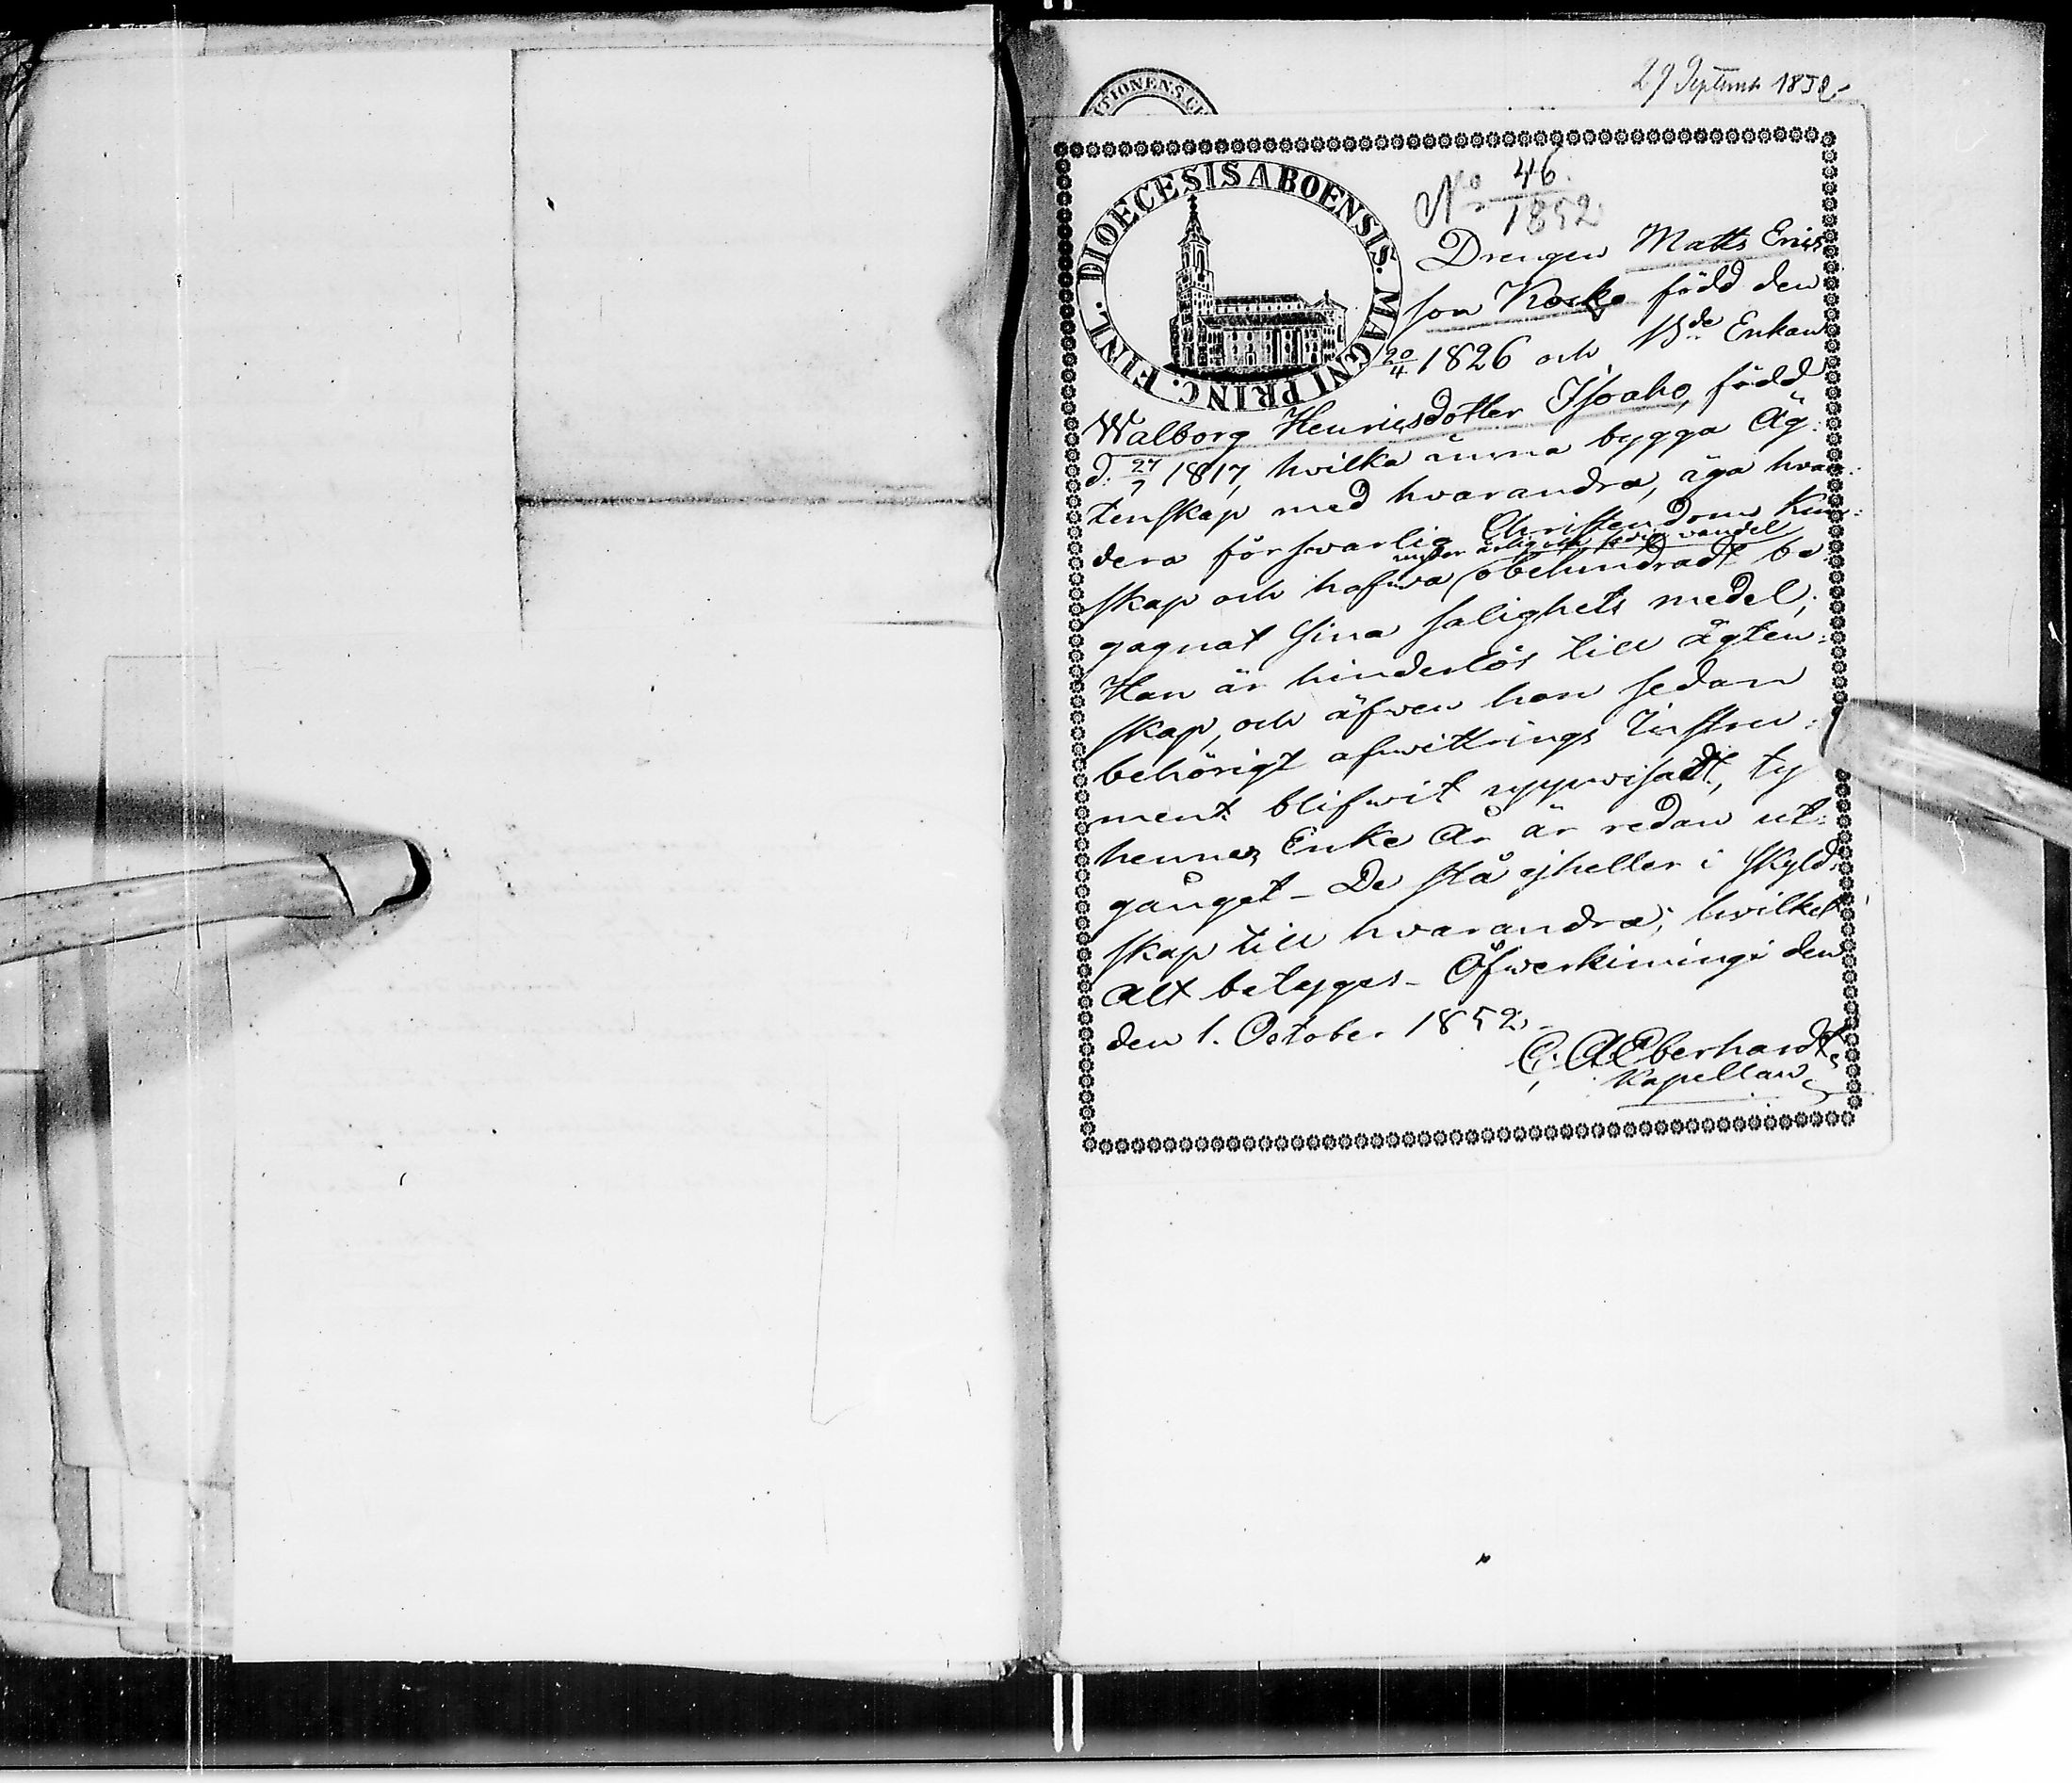 29 Septemb 1852
TIONENS
DIOECESIS ABOENSIS. MAGNI PRINC. FINL.
No 46.
1852
Drengen Matts Erics
son Koski född den
20/4 1826 och Bde Enkan
Walborg Henricsdotter Isoaho, född
d. 27/7 1817, hvilka ärna bygga Äg:
tenskap med hvarandra, äga hvar:
dera försvarlig Christendoms Kun:
under ärlig och fredig vandel
skap och hafwa obehindradt be
gagnat sina salighets medel;
Han är hinderlös till ägten:
skap, och äfwen hon sedan
behörigt afwittrings Instru:
ment blifwit uppwisadt, ty
hennes Enke År är redan ut:
gånget - De stå ejheller i Skyld:
skap till hvarandra; hvilket
allt betyges - Öfwerkiimingi den
den 1. October 1852.
C. A Eberhardt
Kapellan